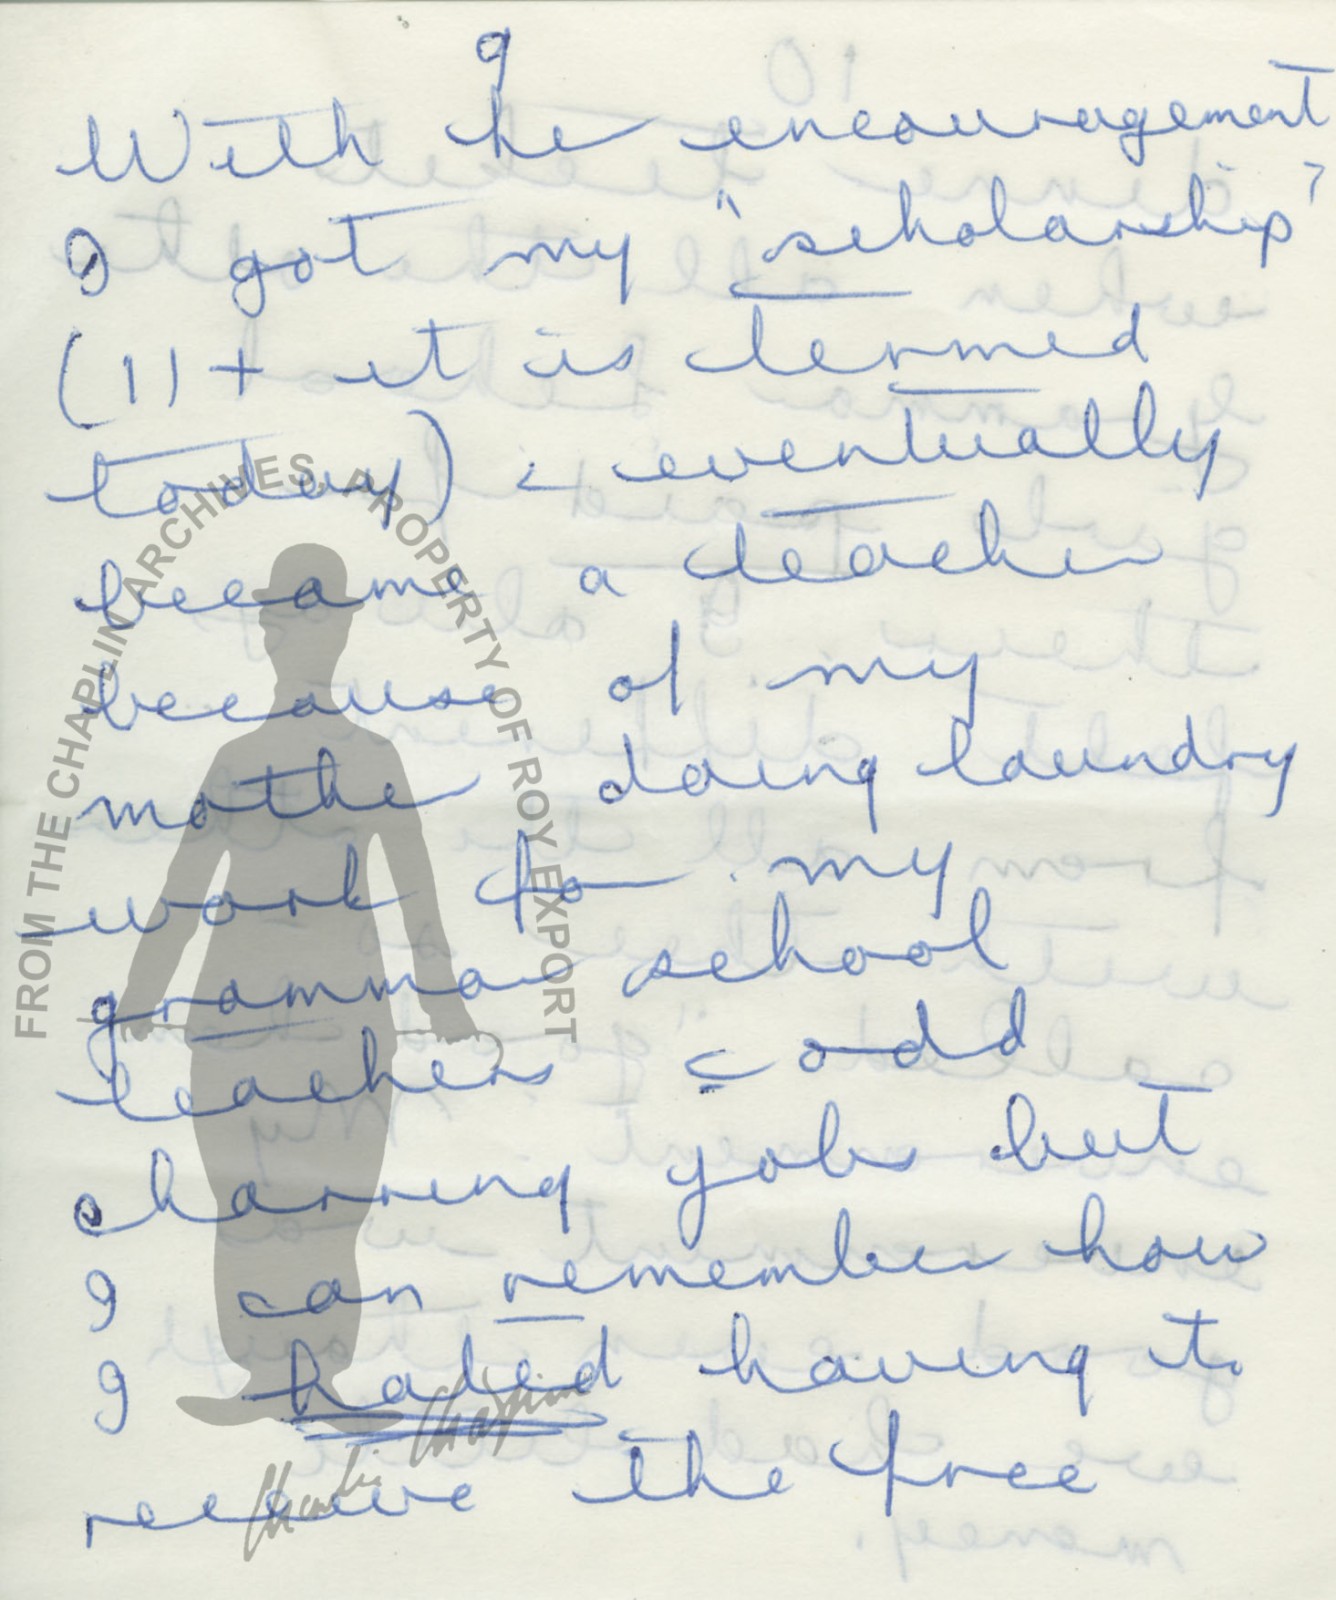 9
With her encouragement
I got my "scholarship"
(11+ it is termed
today) & eventually
became a teacher
because of my
mother doing laundry
work for my
grammar school
teachers & odd
charring jobs but
I can remember how
I hated having to
receive the free
FROM THE CHAPLIN ARCHIVES, PROPERTY OF ROY EXPORT
Charlie Chaplin